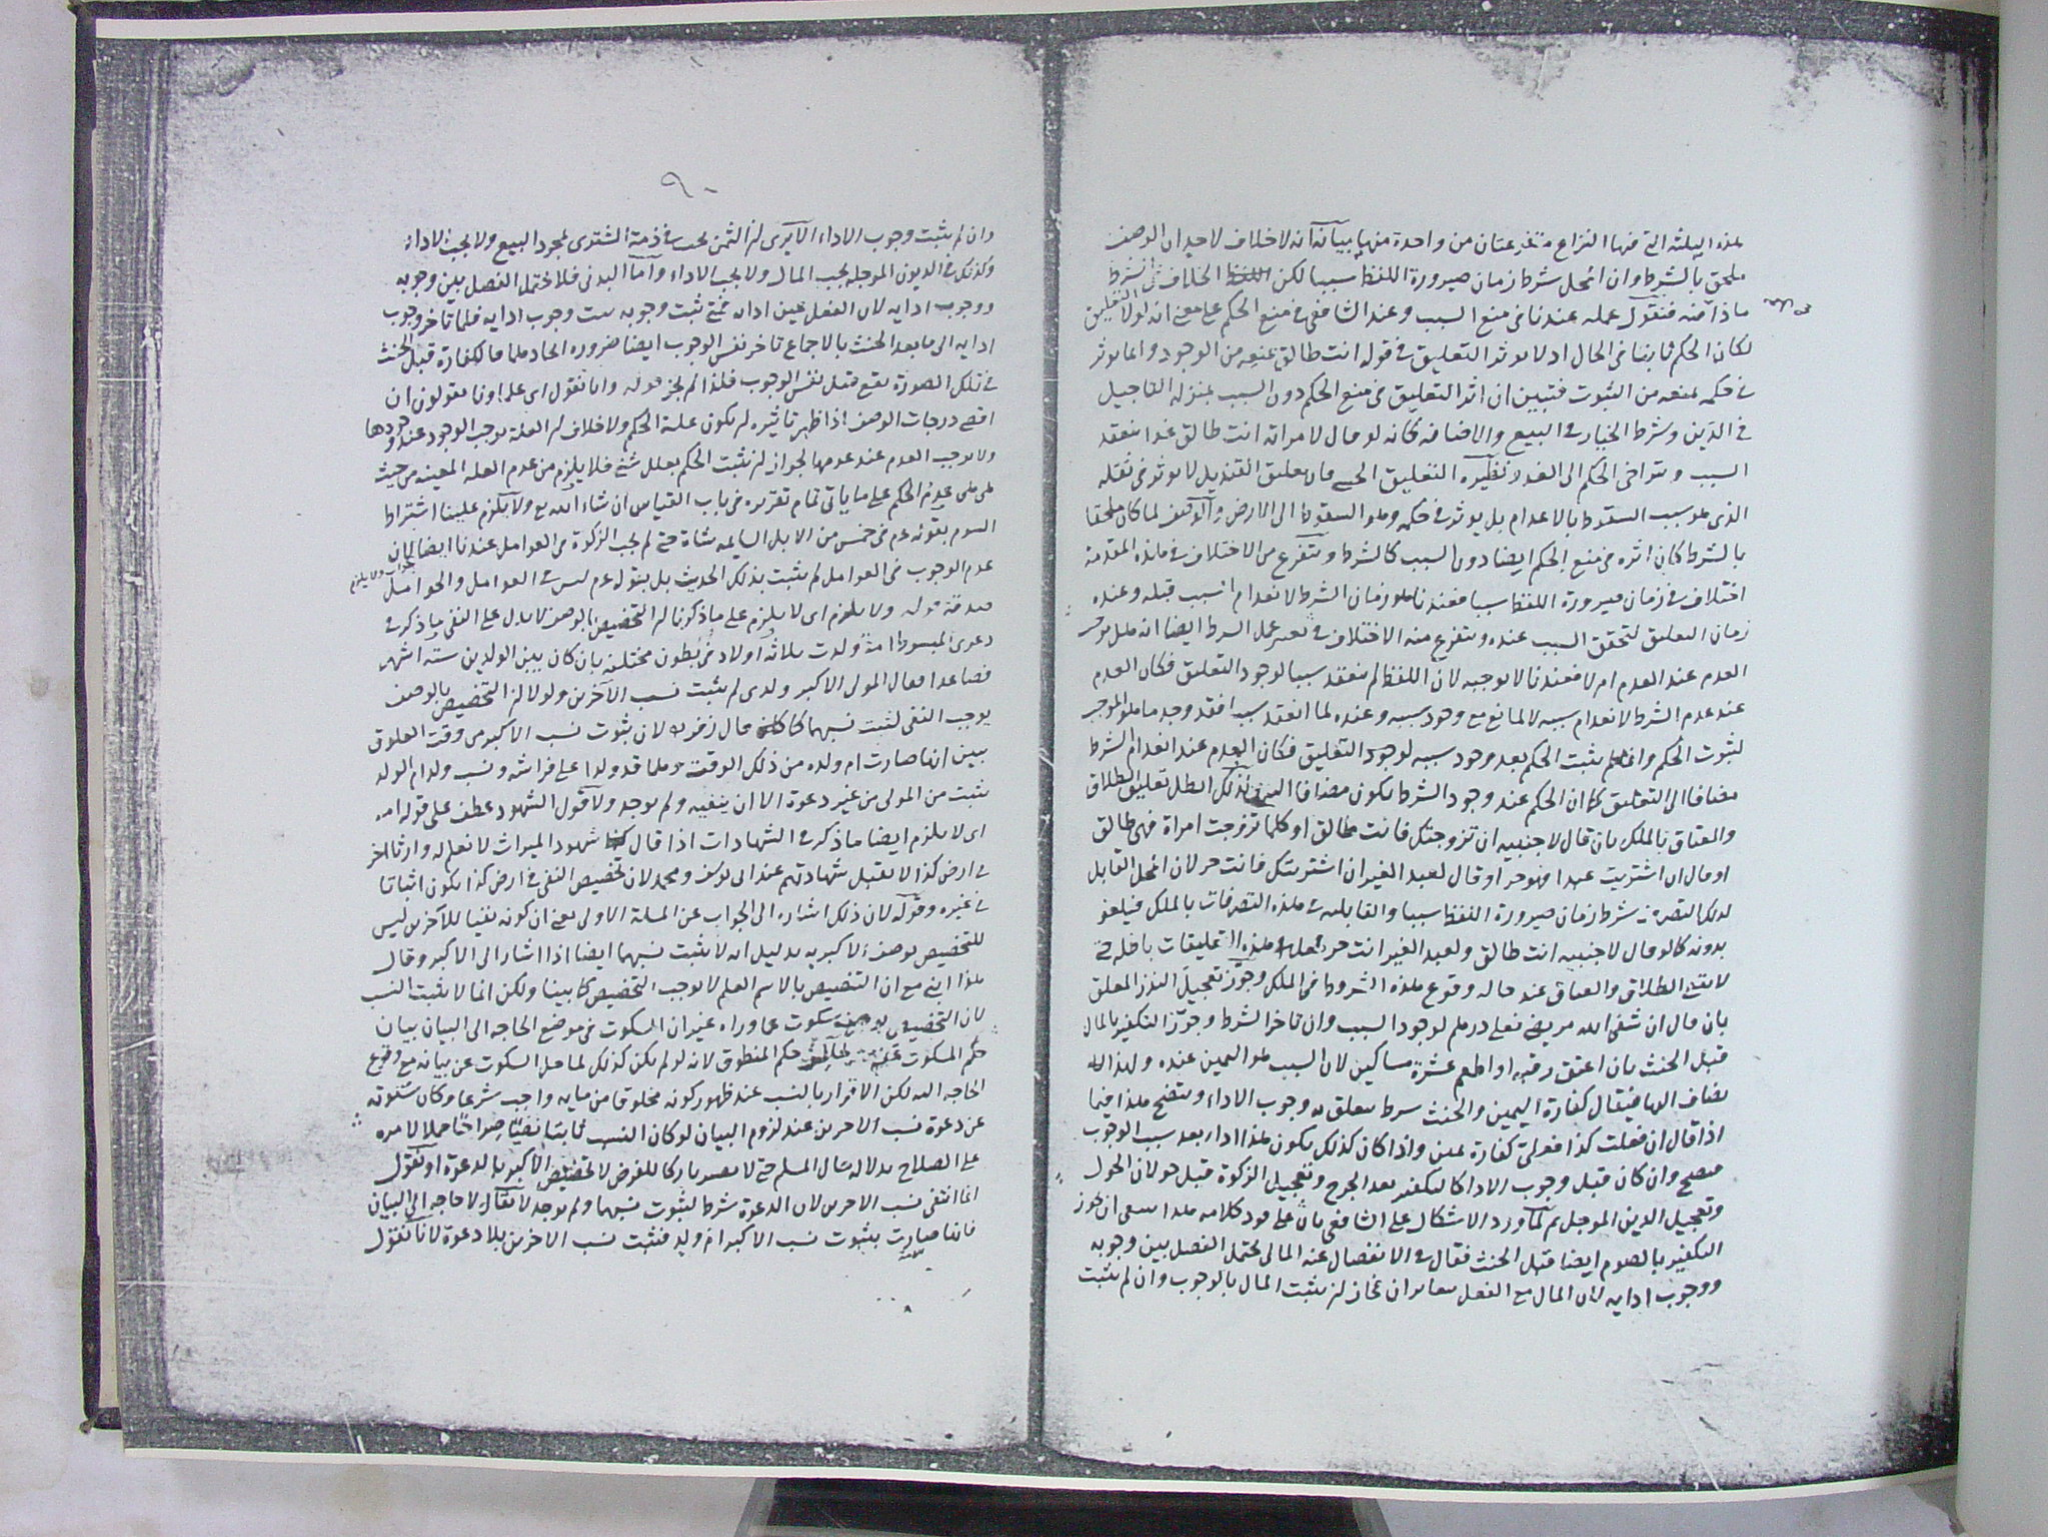 هذه الثلثة التى فيها النزاع متفرعتان من واحدة منها بيانه انه لا خلاف لاحد ان الوصف
ملحق بالشرط وان المحل شرط زمان صيرورة اللفظ سببا لكن الخلاف فى الشرط
ماذا منه فنقول عمله عندنا فى منع السبب وعند الشافعى فى منع الحكم على معنى انه لولا التعليق
لكان الحكم ثابتا فى الحال اذ لا يوثر التعليق فى قوله انت طالق بمنعه من الوجود وانما يوثر
فى حكمه بمنعه من الثبوت فتبين ان اثر التعليق فى منع الحكم دون السبب بمنزلة التاجيل
فى الدين وشرط الخيار فى البيع والاضافه كانه لو قال لامراته انت طالق غدا ينعقد
السبب ويتراخى الحكم الى الغد ونظيره التعليق الحسى فان تعليق القنديل لا يوثر فى ثقله
الذى هو سبب السقوط بالاعدام بل يوثر فى حكمه وهو السقوط الى الارض والوصف لما كان ملحقا
بالشرط كان اثره فى منع الحكم ايضا دون السبب كالشرط ويتفرع من الاختلاف فى هذه المقدمة
اختلاف فى زمان صيرورة اللفظ سببا فعندنا هو زمان الشرط لانعدام السبب قبله وعنده
زمان التعليق لتحقق السبب عنده ويتفرع منه الاختلاف فى تفسير عمل الشرط ايضا انه هل يوجب
العدم عند العدم ام لا فعندنا لا يوجبه لان اللفظ لم ينعقد سببا لوجود التعليق فكان العدم
عند عدم الشرط لانعدام سببه لا لمانع مع وجود سببه وعنده لما انعقد سببا فقد وجد ما هو الموجب
لثبوت الحكم وانما لم يثبت الحكم بعد وجود سببه لوجود التعليق فكان العدم عند انعدام الشرط
مضافا الى التعليق كما ان الحكم عند وجود الشرط يكون مضافا اليه ولذلك ابطل تعليق الطلاق
والعتاق بالملك بان قال لاجنبيه ان تزوجتك فانت طالق او كلما تزوجت امراة فهى طالق
او قال ان اشتريت عبدا فهو حر او قال لعبد الغير ان اشتريتك فانت حر لان المحل القابل
لذلك التصرف شرط زمان صيرورة اللفظ سببا والقابليه فى هذه التصرفات بالملك فيلغو
بدونه كما لو قال لاجنبيه انت طالق ولعبد الغير انت حر هذه التعليقات باطله حتى
لا يقع الطلاق والعتاق عند حاله وقوع هذه الشروط فى الملك وجوز تعجيل النذر المعلق
بان قال ان شفى الله مريضى فعلى درهم لوجود السبب وان تاخر الشرط وجوز التكفير بالمال
قبل الحنث بان اعتق رقبه او اطعم عشرة مساكين لان السبب هو اليمين عنده ولهذا
يضاف اليها فيقال كفارة اليمين والحنث شرط يتعلق به وجوب الاداء ويتضح هذا فيما
اذا قال ان فعلت كذا فعلى كفارة يمين واذا كان كذلك يكون هذا اداء بعد سبب الوجوب
فيصح وان كان قبل وجوب الاداء كالتكفير بعد الجرح وتعجيل الزكوة قبل حولان الحول
وتعجيل الدين الموجل ثم لما ورد الاشكال على الشافعى بان على قود كلامه هذا ينبغى ان يجوز
التكفير بالصوم ايضا قبل الحنث فقال فى الانفصال عنه المالى يحتمل الفصل بين وجوبه
ووجوب ادايه لان المال مع الفعل متغايران فجاز ان يثبت المال بالوجوب وان لم يثبت
٩٠
وان لم يثبت وجوب الاداء الا يرى ان الثمن يجب فى ذمة المشترى بمجرد البيع ولا يجب الاداء
وكذلك فى الديون الموجله يجب المال ولا يجب الاداء واما البدنى فلا يحتمل الفصل بين وجوبه
ووجوب ادايه لان الفعل عين ادائه فمتى ثبت وجوبه ثبت وجوب ادايه فلما تاخر وجوب
ادايه الى ما بعد الحنث بالاجماع تاخر نفس الوجوب ايضا ضرورة اتحادهما فالكفارة قبل الحنث
فى تلك الصورة يقع قبل نفس الوجوب فلذا لم يجز قوله وانا نقول اى علماونا يقولون ان
اقصى درجات الوصف اذا ظهر تاثيره ان يكون علة الحكم ولا خلاف ان العلة يوجب الوجود عند وجودها
ولا يوجب العدم عند عدمها لجواز ان يثبت الحكم بعلل شتى فلا يلزم من عدم العله المعينه من حيث
هى هى عدم الحكم على ما ياتى تمام تقريره فى باب القياس ان شاء الله تع ولا يلزم علينا اشتراط
السوم بقوله عم فى خمس من الابل السايمه شاة حتى لم يجب الزكوة فى العوامل عندنا ايضا لان
عدم الوجوب فى العوامل لم يثبت بذلك الحديث بل بقوله عم ليس فى العوامل والحوامل
صدقة قوله ولا يلزم اى لا يلزم على ما ذكرنا ان التخصيص بالوصف لا يدل على النفى ما ذكر فى
دعوى المبسوط امة ولدت ثلاثة اولاد فى بطون مختلفه بان كان بين الولدين ستة اشهر
فصاعدا فقال المولى الاكبر ولدى لم يثبت نسب الآخرين ولولا ان التخصيص بالوصف
يوجب النفى لثبت نسبهما كما قال زفر لان بثبوت نسب الاكبر من وقت العلوق
تبين انها صارت ام ولده من ذلك الوقت وهما قد ولدا على فراشه ونسب ولد ام الولد
يثبت من المولى من غير دعوة الا ان ينفيه ولم يوجد ولا قول الشهود عطف على قوله امه
اى لا يلزم ايضا ما ذكر فى الشهادات اذا قال شهود الميراث لا نعلم له وارثا اخر
فى ارض كذا لا يقبل شهادتهم عند ابى يوسف ومحمد لان تخصيص النفى فى ارض كذا يكون اثباتا
فى غيره وقوله لان ذلك اشاره الى الجواب عن المسلة الاولى يعنى ان كونه نفيا للآخرين ليس
للتخصيص بوصف الاكبريه بدليل انه لا يثبت نسبهما ايضا اذا اشار الى الاكبر وقال
هذا ابنى مع ان التنصيص بالاسم العلم لا يوجب التخصيص كما بينا ولكن انما لا يثبت النسب
لان التخصيص بوصف سكوت عما وراه غير ان السكوت فى موضع الحاجه الى البيان بيان
حكم المسكوت عنه حكم المنطوق لانه لو لم يكن كذلك لما حل السكوت عن بيانه مع وقوع
الحاجه اليه لكن الاقرار بالنسب عند ظهور كونه مخلوقا من مايه واجب شرعا وكان سكوته
عن دعوة نسب الاخرين عند لزوم البيان لو كان النسب ثابتا نفيا حملا لامره
على الصلاح بدلاله حال المسلم حتى لا يصير تاركا للفرض لا تخصيص الاكبر بالدعوة او نقول
انما انتفى نسب الاخرين لان الدعوة شرط لثبوت نسبهما ولم يوجد لا يقال لا حاجه الى البيان
فانها صارت بثبوت نسب الاكبر ام ولد فثبت نسب الاخرين بلا دعوة لانا نقول